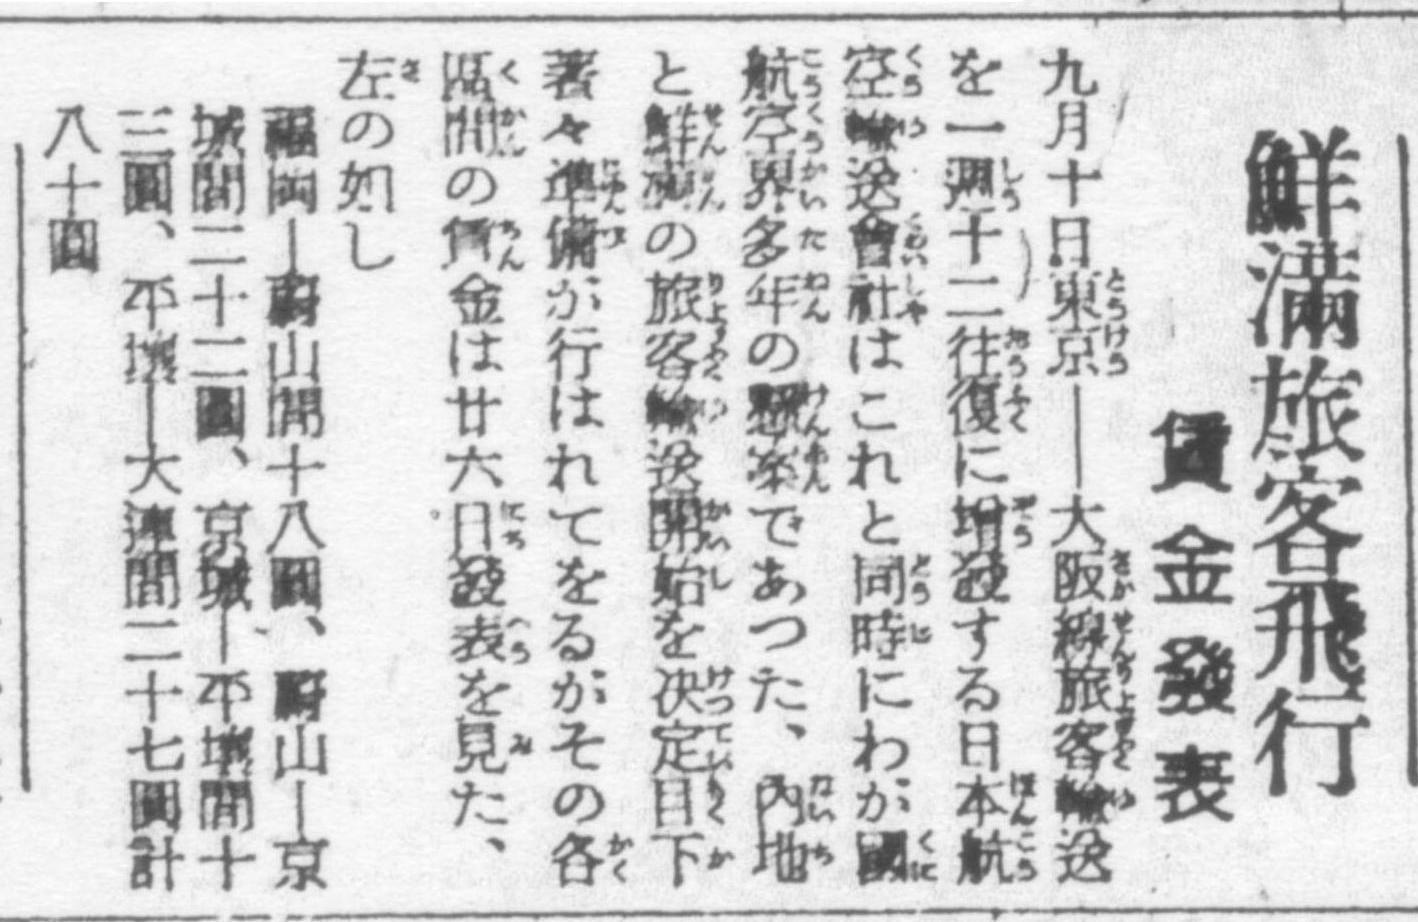 鮮滿旅客飛行
賃金發表
九月十日東京―大阪線旅客輸送
を一週十二往復に増發する日本航
空輸送會社はこれと同時にわが國
航空界多年の懸案であつた、內地
と鮮滿の旅客輸送開始を決定目下
著々準備が行はれてをるがその各
區間の賃金は廿六日發表を見た、
左の如し
福岡―蔚山間十八圓、蔚山―京
城間二十二圓、京城―平壤間十
三圓、平壤―大連間二十七圓計
八十圓